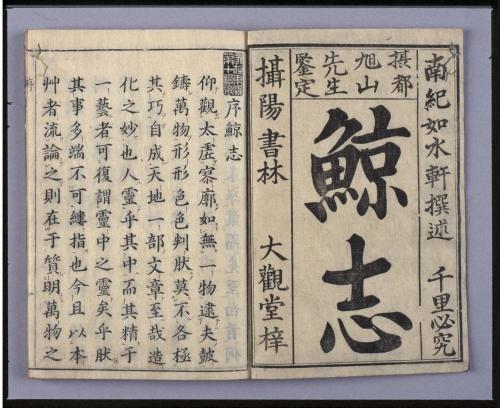 南紀如水軒撰述
千里必究
鯨志
摂都
旭山
先生
鑒定
攝陽書林
大觀堂梓
序鯨志
仰觀太虚寥廓如無一物逮夫鼓
鑄萬物形形色色判肰莫不各極
其巧自成天地一部文章至哉造
化之妙也人靈乎其中而其精于
一藝者可復謂靈中之靈矣乎肰
其事多端不可縷指也今且以本
艸者流論之則在于質明萬物之